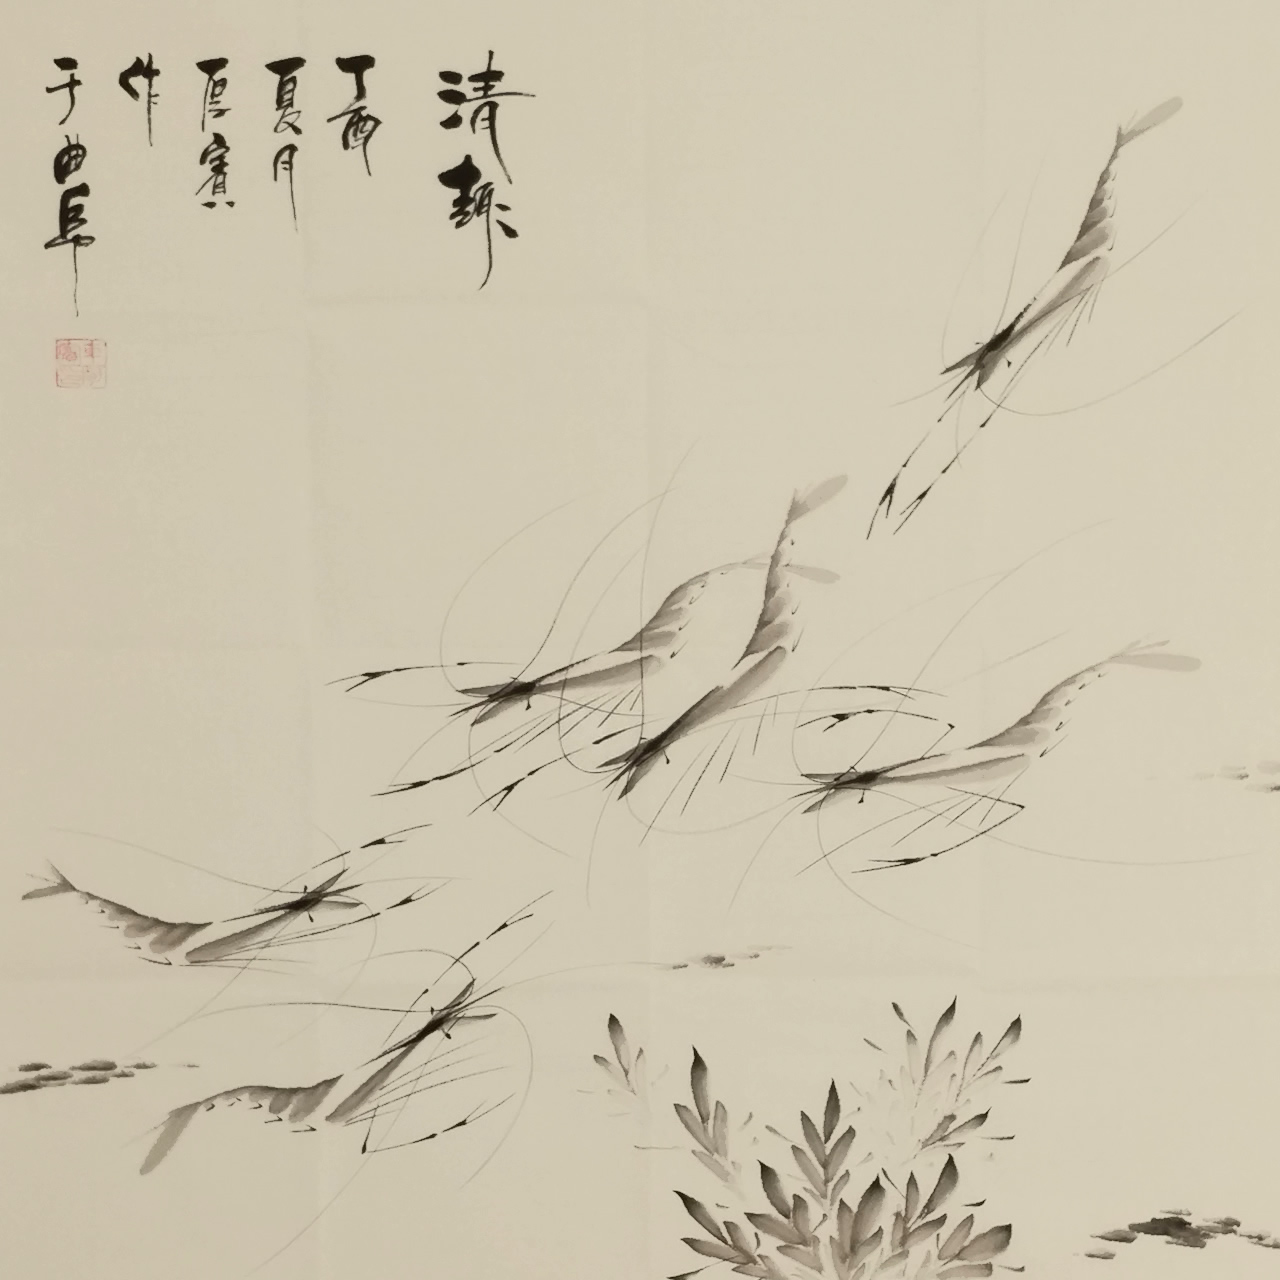 清趣
丁酉
夏月
厚賓
作
于曲阜